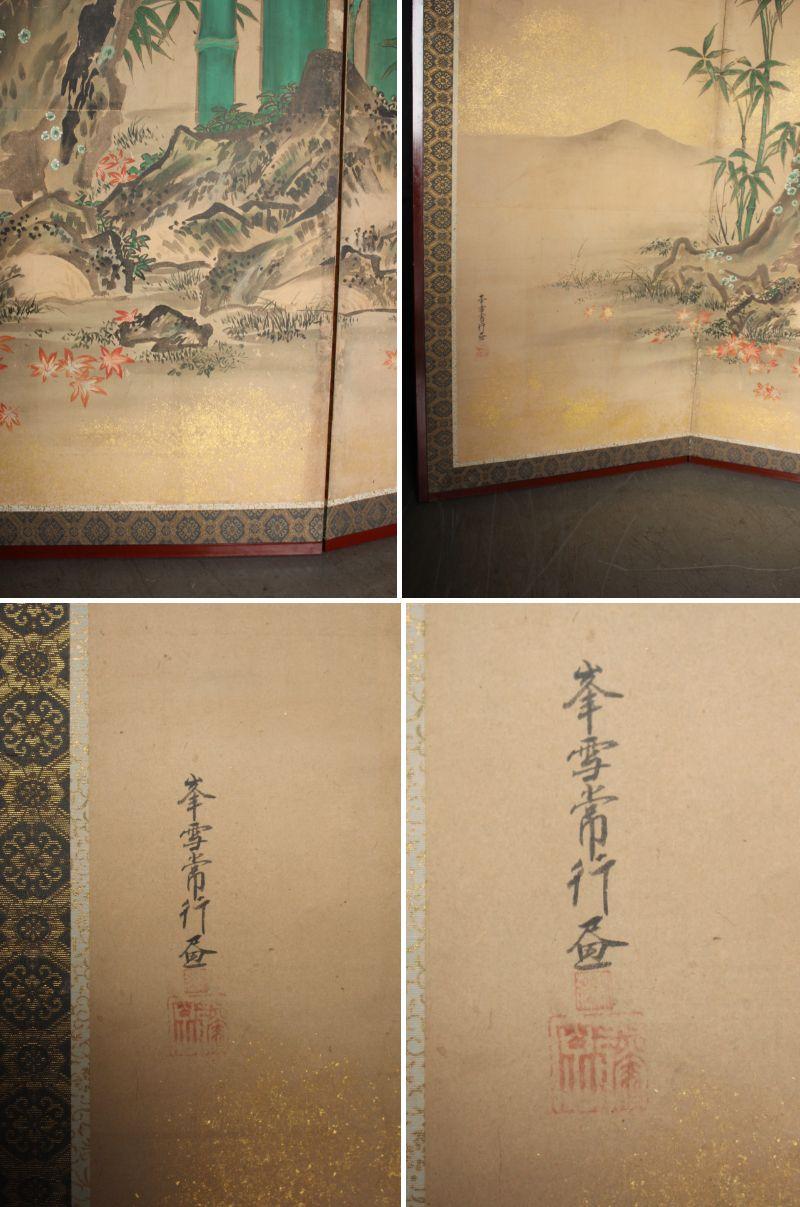 峯雪常行昼
峯雪常行昼
峯雪常行昼